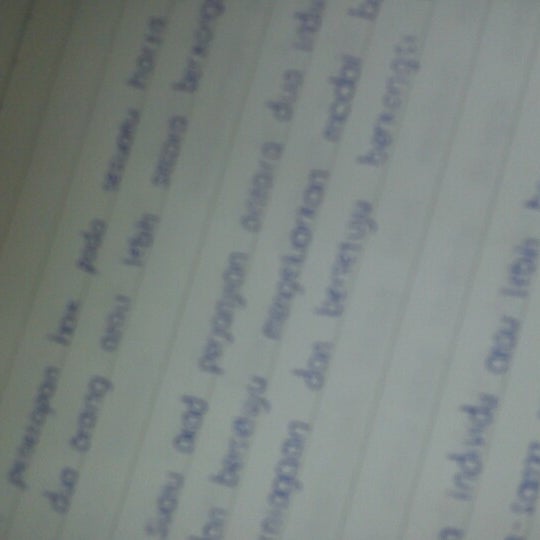 penetapan hak pada sesuatu harta
dua orang atau lebih secara berkong
suatu akad perjanjian antara dua indiv
dan bersetuju mengeluarkan modal b
rniagaan dan bersetuju berkongsi
individu atau lebih